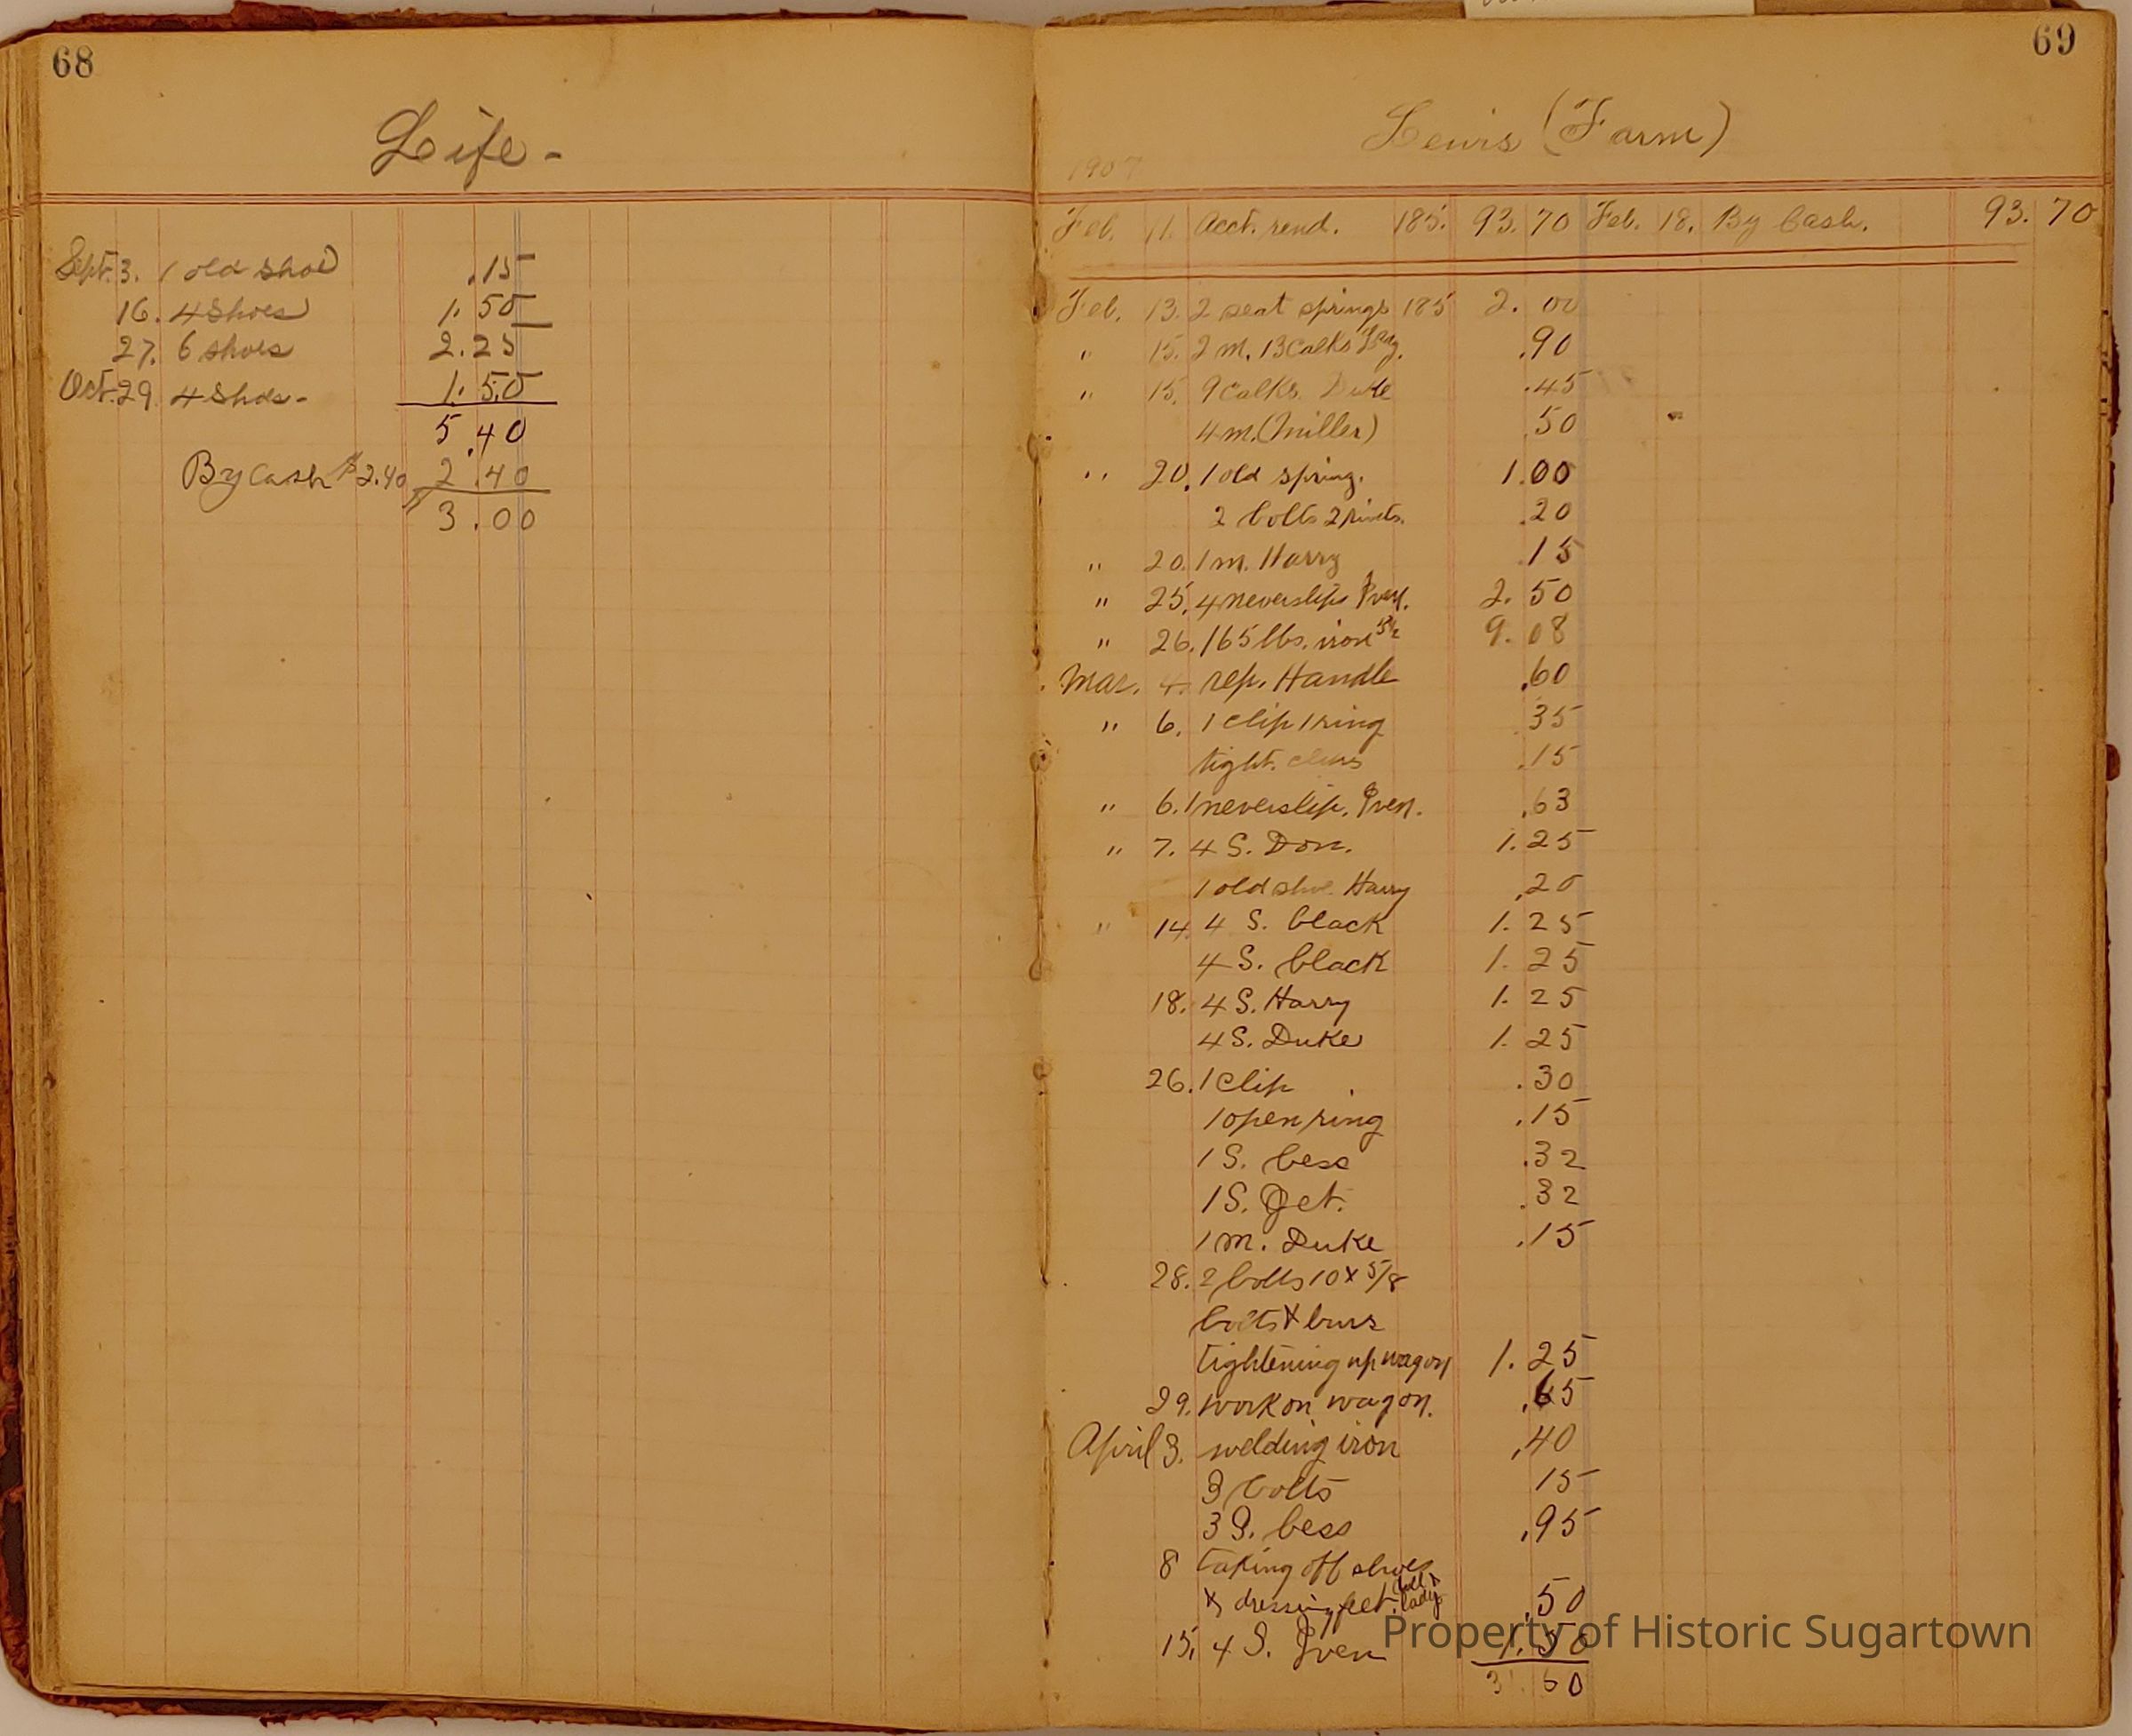 68
Life -
Sept. 3. 1 old shoe .15
16. 4 Shoes 1.50
27. 6 shoes 2.25
Oct. 29 4 Shoes - 1.50
5.40
By Cash $2.40 2.40
3.00
69
Lewis (Farm)
1907
Feb. 11. Acct. rend. 185. 93.70 Feb. 18. By Cash. 93.70
Feb. 13. 2 seat springs 185 2.00
" 15. 2 m. 13 Calks .90
" 15. 9 Calks. Duke .45
4 m. (Miller) .50
" 20. 1 old spring. 1.00
2 bolts 2 rivets. .20
" 20. 1 m. Harry .15
" 25. 4 neverslips 2.50
" 26. 165 lbs. iron 5½ 9.08
Mar. 4. rep. Handle .60
" 6. 1 clip 1 ring 35
tight. .15
" 6. 1 neverslip. .63
" 7. 4 S. Don. 1.25
1 old shoe. Harry .20
" 14. 4 S. black 1.25
4 S. black 1.25
18. 4 S. Harry 1.25
4 S. Duke 1.25
26. 1 clip .30
1 open ring .15
1 S. bess .32
1 S. Jet. .32
1 m. Duke .15
28. 2 bolts 10 x 5/8
bolts & burs
tightening up wagon 1.25
29. work on wagon. .65
April 3. welding iron .40
3 bolts 15
3 S. bess .95
8 taking off shoes
& dressing feet. lady .50
15. 4 S. 1.50
Property of Historic Sugartown